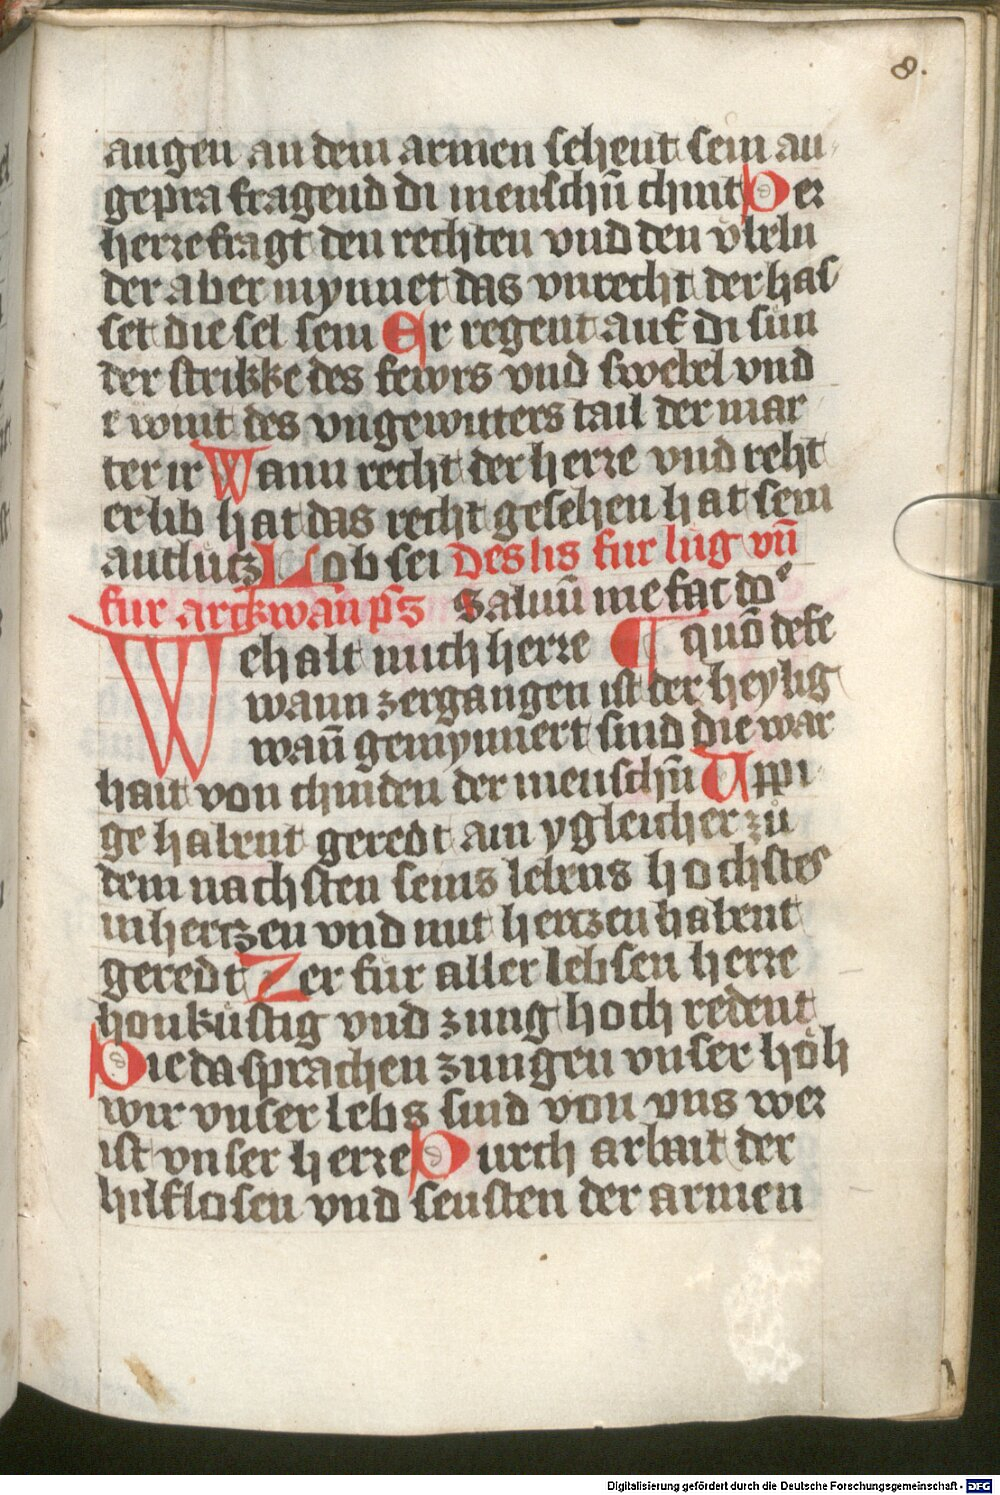 8.
augen an dem armen sehent sein au
gepra fragend di menschn̄ chint Der
herre fragt den rechten vnd den v̈beln
der aber mynnet das vnrecht der has
set die sel sein Er regent auf di sün
der strikke des fewrs vnd swebel vnd
e wint des vngewitters tail der mar
ter ir Wann recht der herre vnd reht
er lib hat das recht gesehen hat sein
antlütz Lob sei Des lis fur lüg vn̄
fur arckwān ps Saluū me fac do͛
Wehalt mich herre ¶ quō defe
wann zergangen ist der heylig
wan̄ gemynnert sind die war
hait von chinden der menschn̄ Vppi
ge habent geredt ain ygleicher zů
dem nachsten seins lebens hochstes
in hertzen vnd mit hertzen habent
geredt Zer für aller lebsen herre
honküstig vnd zung hoch redent
Die da sprachen zungen vnser höh
wir vnser lebs sind von vns wer
ist vnser herre Durch arbait der
hilflosen vnd seusten der armen
Digitalisierung gefördert durch die Deutsche Forschungsgemeinschaft - DFG